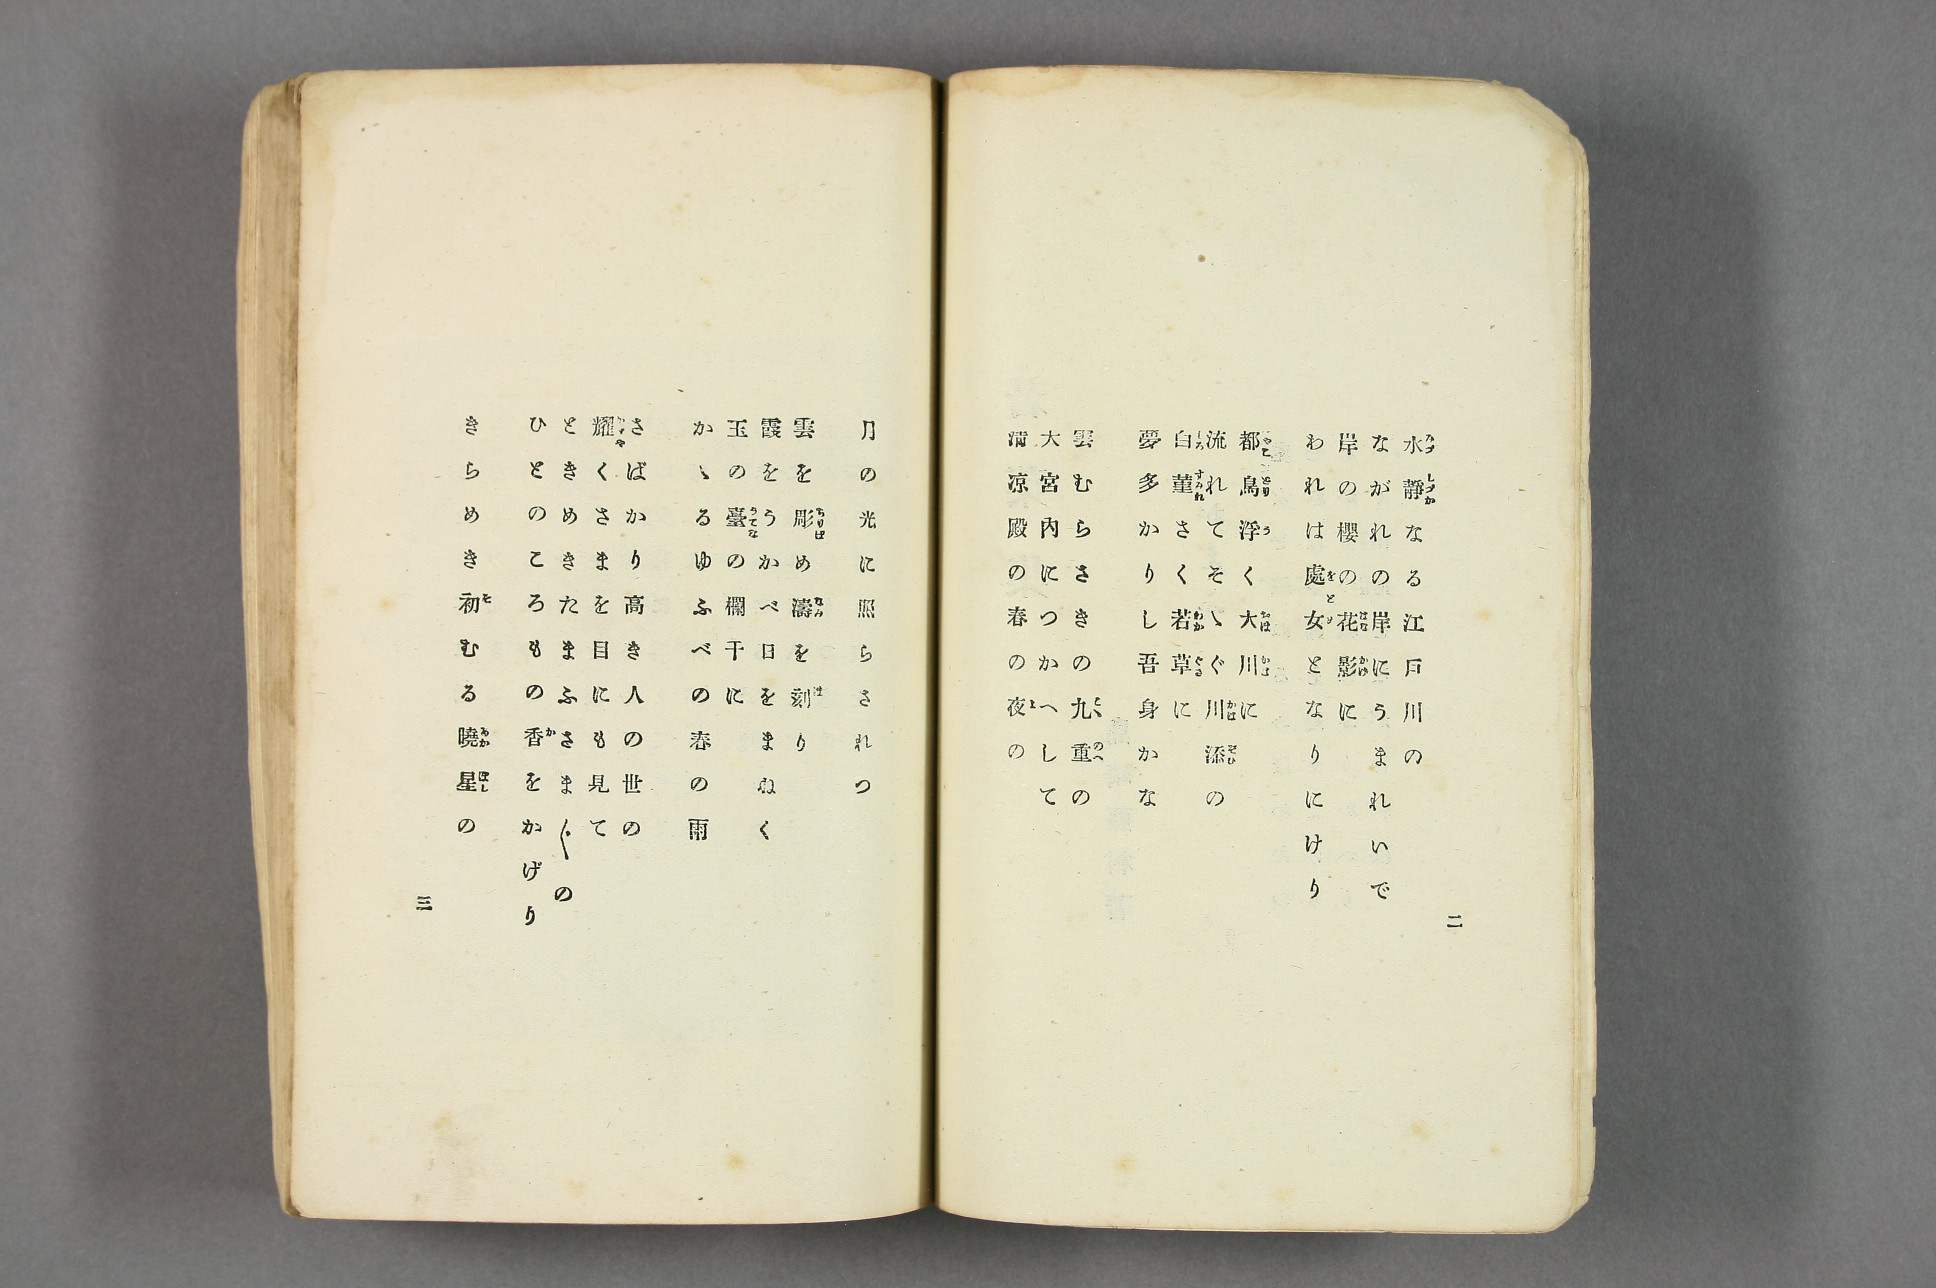 水靜なる江戸川の
ながれの岸にうまれいで
岸の櫻の花影に
われは處女となりにけり
都鳥浮く大川に
流れてそゝぐ川添の
白菫さく若草に
夢多かりし吾身かな
雲むらさきの九重の
大宮内につかへして
清凉殿の春の夜の
二
月の光に照らされつ
雲を彫め濤を刻り
霞をうかべ日をまねく
玉の臺の欄干に
かゝるゆふべの春の雨
さばかり高き人の世の
耀くさまを目にも見て
ときめきたまふさま〴〵の
ひとのころもの香をかげり
きらめき初むる曉星の
三